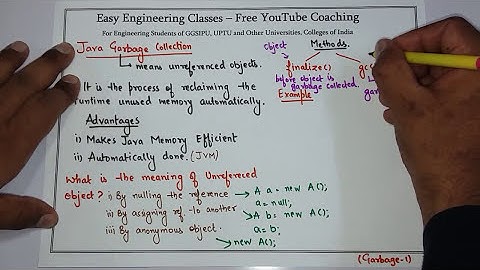 Easy Engineering Classes – Free YouTube Coaching
For Engineering Students of GGSIPU, UPTU and Other Universities, Colleges of India
Java Garbage Collection
means unreferenced objects.
It is the process of reclaiming the
runtime unused memory automatically.
Advantages
i) Makes Java Memory Efficient
ii) Automatically done. (JVM)
What is the meaning of Unrefereced
Object? i) By nulling the reference → A a = new A();
a = null;
ii) By assigning ref. to another → A b = new A();
a = b;
iii) By anonymous object.
→ new A();
Methods.
object
finalize()
before object is
garbage collected.
Example
gc
gar
(Garbage-1)